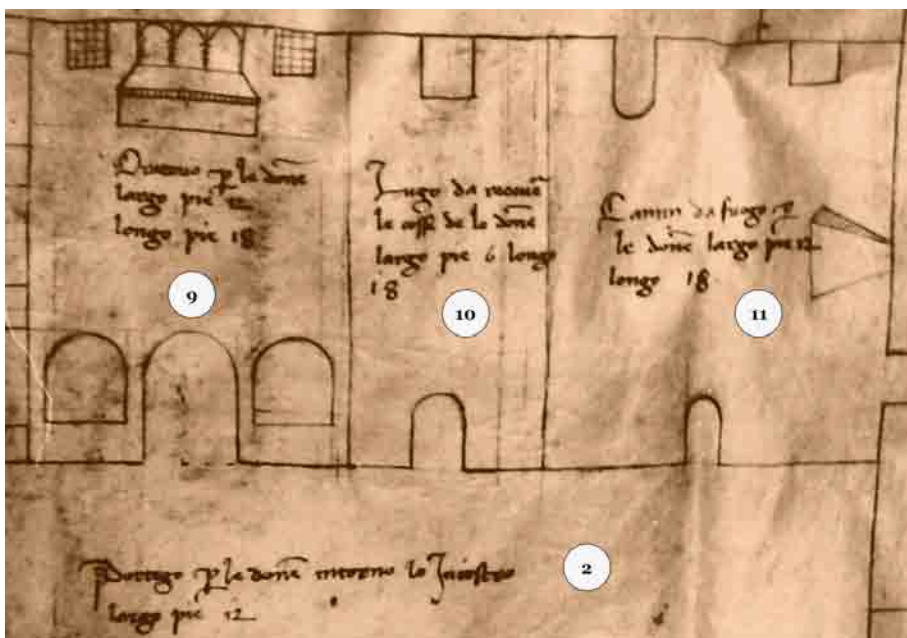 Oratorio p le done
largo pie 12
longo pie 18
9
Lugo da
le cosse de le done
largo pie 6 longo
18
10
Camin da fuogo p
le done largo pie 12
longo 18
11
Portego p le done intorno lo Inclostro
largo pie 12
2